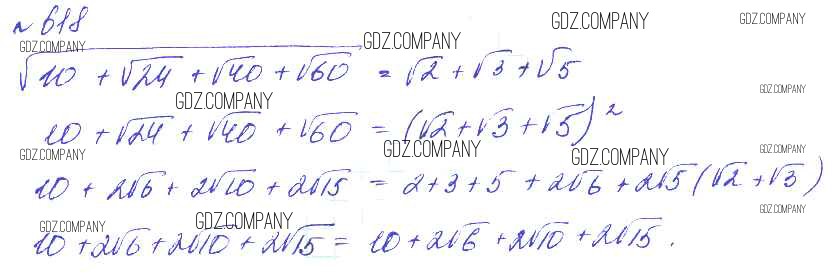 № 618
GDZ.COMPANY GDZ.COMPANY
GDZ.COMPANY GDZ.COMPANY
√(10 + √24 + √40 + √60) = √2 + √3 + √5
GDZ.COMPANY GDZ.COMPANY
10 + √24 + √40 + √60 = (√2 + √3 + √5)²
GDZ.COMPANY GDZ.COMPANY GDZ.COMPANY GDZ.COMPANY
10 + 2√6 + 2√10 + 2√15 = 2+3+5 + 2√6 + 2√5 (√2 + √3)
GDZ.COMPANY GDZ.COMPANY GDZ.COMPANY
10 + 2√6 + 2√10 + 2√15 = 10 + 2√6 + 2√10 + 2√15.